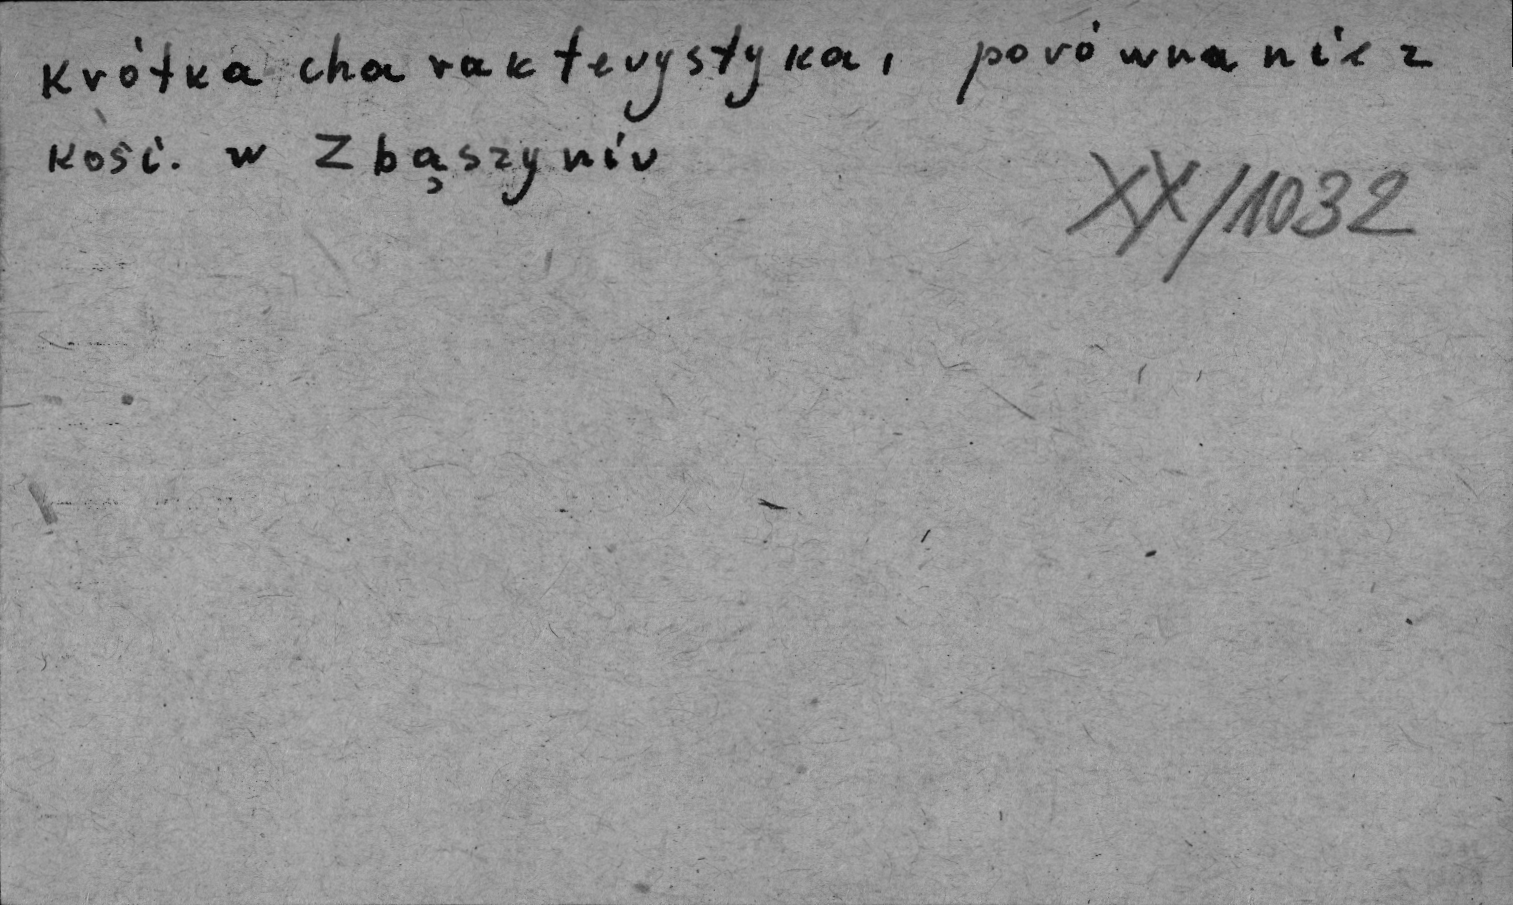 krótka charakterystyka, porównanie z
kość. w Zbąszyniu
XX/1032